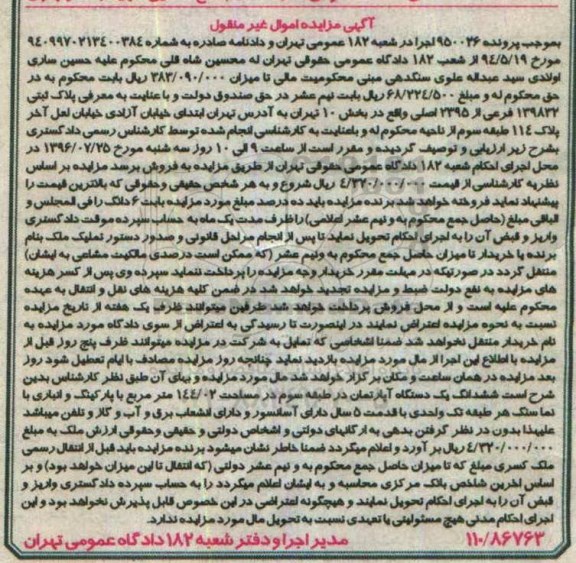 آگهی مزایده اموال غیر منقول
بموجب پرونده ۹۵۰۰۳۶ اجرا در شعبه ۱۸۲ عمومی تهران و دادنامه صادره به شماره ۹۴۰۹۹۷۰۲۱۳۴۰۰۳۸۴
مورخ ۹۴/۵/۱۹ از شعب ۱۸۲ دادگاه عمومی حقوقی تهران له محسین شاه قلی محکوم علیه حسین ساری
اولادی سید عبداله علوی سنگدهی مبنی محکومیت مالی تا میزان ۳۸۳/۰۹۰/۰۰۰ ریال بابت محکوم به در
حق محکوم له و مبلغ ۶۸/۲۲۴/۵۰۰ ریال بابت نیم عشر در حق صندوق دولت و با عنایت به معرفی پلاک ثبتی
۱۳۹۸۳۲ فرعی از ۲۳۹۵ اصلی واقع در بخش ۱۰ تهران به آدرس تهران ابتدای خیابان آزادی خیابان لعل آخر
پلاک ۱۱۴ طبقه سوم از ناحیه محکوم له و باعنایت به کارشناسی انجام شده توسط کارشناس رسمی دادگستری
بشرح زیر ارزیابی و توصیف گردیده و مقرر است از ساعت ۹ الی ۱۰ روز سه شنبه مورخ ۱۳۹۶/۰۷/۲۵ در
محل اجرای احکام شعبه ۱۸۲ دادگاه عمومی حقوقی تهران از طریق مزایده به فروش برسد مزایده بر اساس
نظریه کارشناسی از قیمت ۴/۳۲۰/۰۰۰/۰۰۰ ریال شروع و به هر شخص حقیقی وحقوقی که بالاترین قیمت را
پیشنهاد نماید فروخته خواهد شد برنده مزایده باید ده درصد مبلغ مورد مزایده بابت ۶ دانگ را فی المجلس و
الباقی مبلغ (حاصل جمع محکوم به و نیم عشر اعلامی) را ظرف مدت یک ماه به حساب سپرده موقت دادگستری
واریز و قبض آن را به اجرای احکام تحویل نماید تا پس از انجام مراحل قانونی و صدور دستور تملیک ملک بنام
برنده یا خریدار تا میزان حاصل جمع محکوم به ونیم عشر (که ممکن است درصدی مالکیت مشاعی به ایشان)
منتقل گردد در صورتیکه در مهلت مقرر خریدار وجه مزایده را پرداخت ننماید سپرده وی پس از کسر هزینه
های مزایده به نفع دولت ضبط و مزایده تجدید خواهد شد در ضمن کلیه هزینه های نقل و انتقال به عهده
محکوم علیه است و از محل فروش پرداخت خواهد شد طرفین میتوانند ظرف یک هفته از تاریخ مزایده
نسبت به نحوه مزایده اعتراض نمایند در اینصورت تا رسیدگی به اعتراض از سوی دادگاه مورد مزایده به
نام خریدار منتقل نخواهد شد ضمنا اشخاصی که تمایل به شرکت در مزایده میتوانند ظرف پنج روز قبل از
مزایده با اطلاع این اجرا از مال مورد مزایده بازدید نماید چنانچه روز مزایده مصادف با ایام تعطیل شود روز
بعد مزایده در همان ساعت و مکان برگزار خواهد شد مال مورد مزایده و بهای آن طبق نظر کارشناس بدین
شرح است ششدانگ یک دستگاه آپارتمان در طبقه سوم در مساحت ۱۴۴/۰۲ متر مربع با پارکینگ و انباری با
نما سنگ هر طبقه تک واحدی با قدمت ۵ سال دارای آسانسور و دارای انشعاب برق و آب و گاز و تلفن میباشد
علیهذا بدون در نظر گرفتن بدهی به ارگانهای دولتی و اشخاص دولتی و حقیقی وحقوقی ارزش ملک به مبلغ
۴/۳۲۰/۰۰۰/۰۰۰ ریال بر آورد و اعلام میگردد ضمنا خاطر نشان میشود برنده مزایده باید قبل از انتقال رسمی
ملک کسری مبلغ که تا میزان حاصل جمع محکوم به و نیم عشر دولتی (که انتقال تا این میزان خواهد بود) و بر
اساس آخرین شاخص بانک مرکزی محاسبه و به ایشان اعلام میگردد را به حساب سپرده دادگستری واریز و
قبض آن را به اجرای احکام تحویل نمایند و هیچگونه اعتراضی در این خصوص قابل پذیرش نخواهد بود و این
اجرای احکام مدنی هیچ مسئولیتی یا تعهدی نسبت به تحویل مال مورد مزایده ندارد.
۱۱۰/۸۶۷۶۳ مدیر اجرا و دفتر شعبه ۱۸۲ دادگاه عمومی تهران